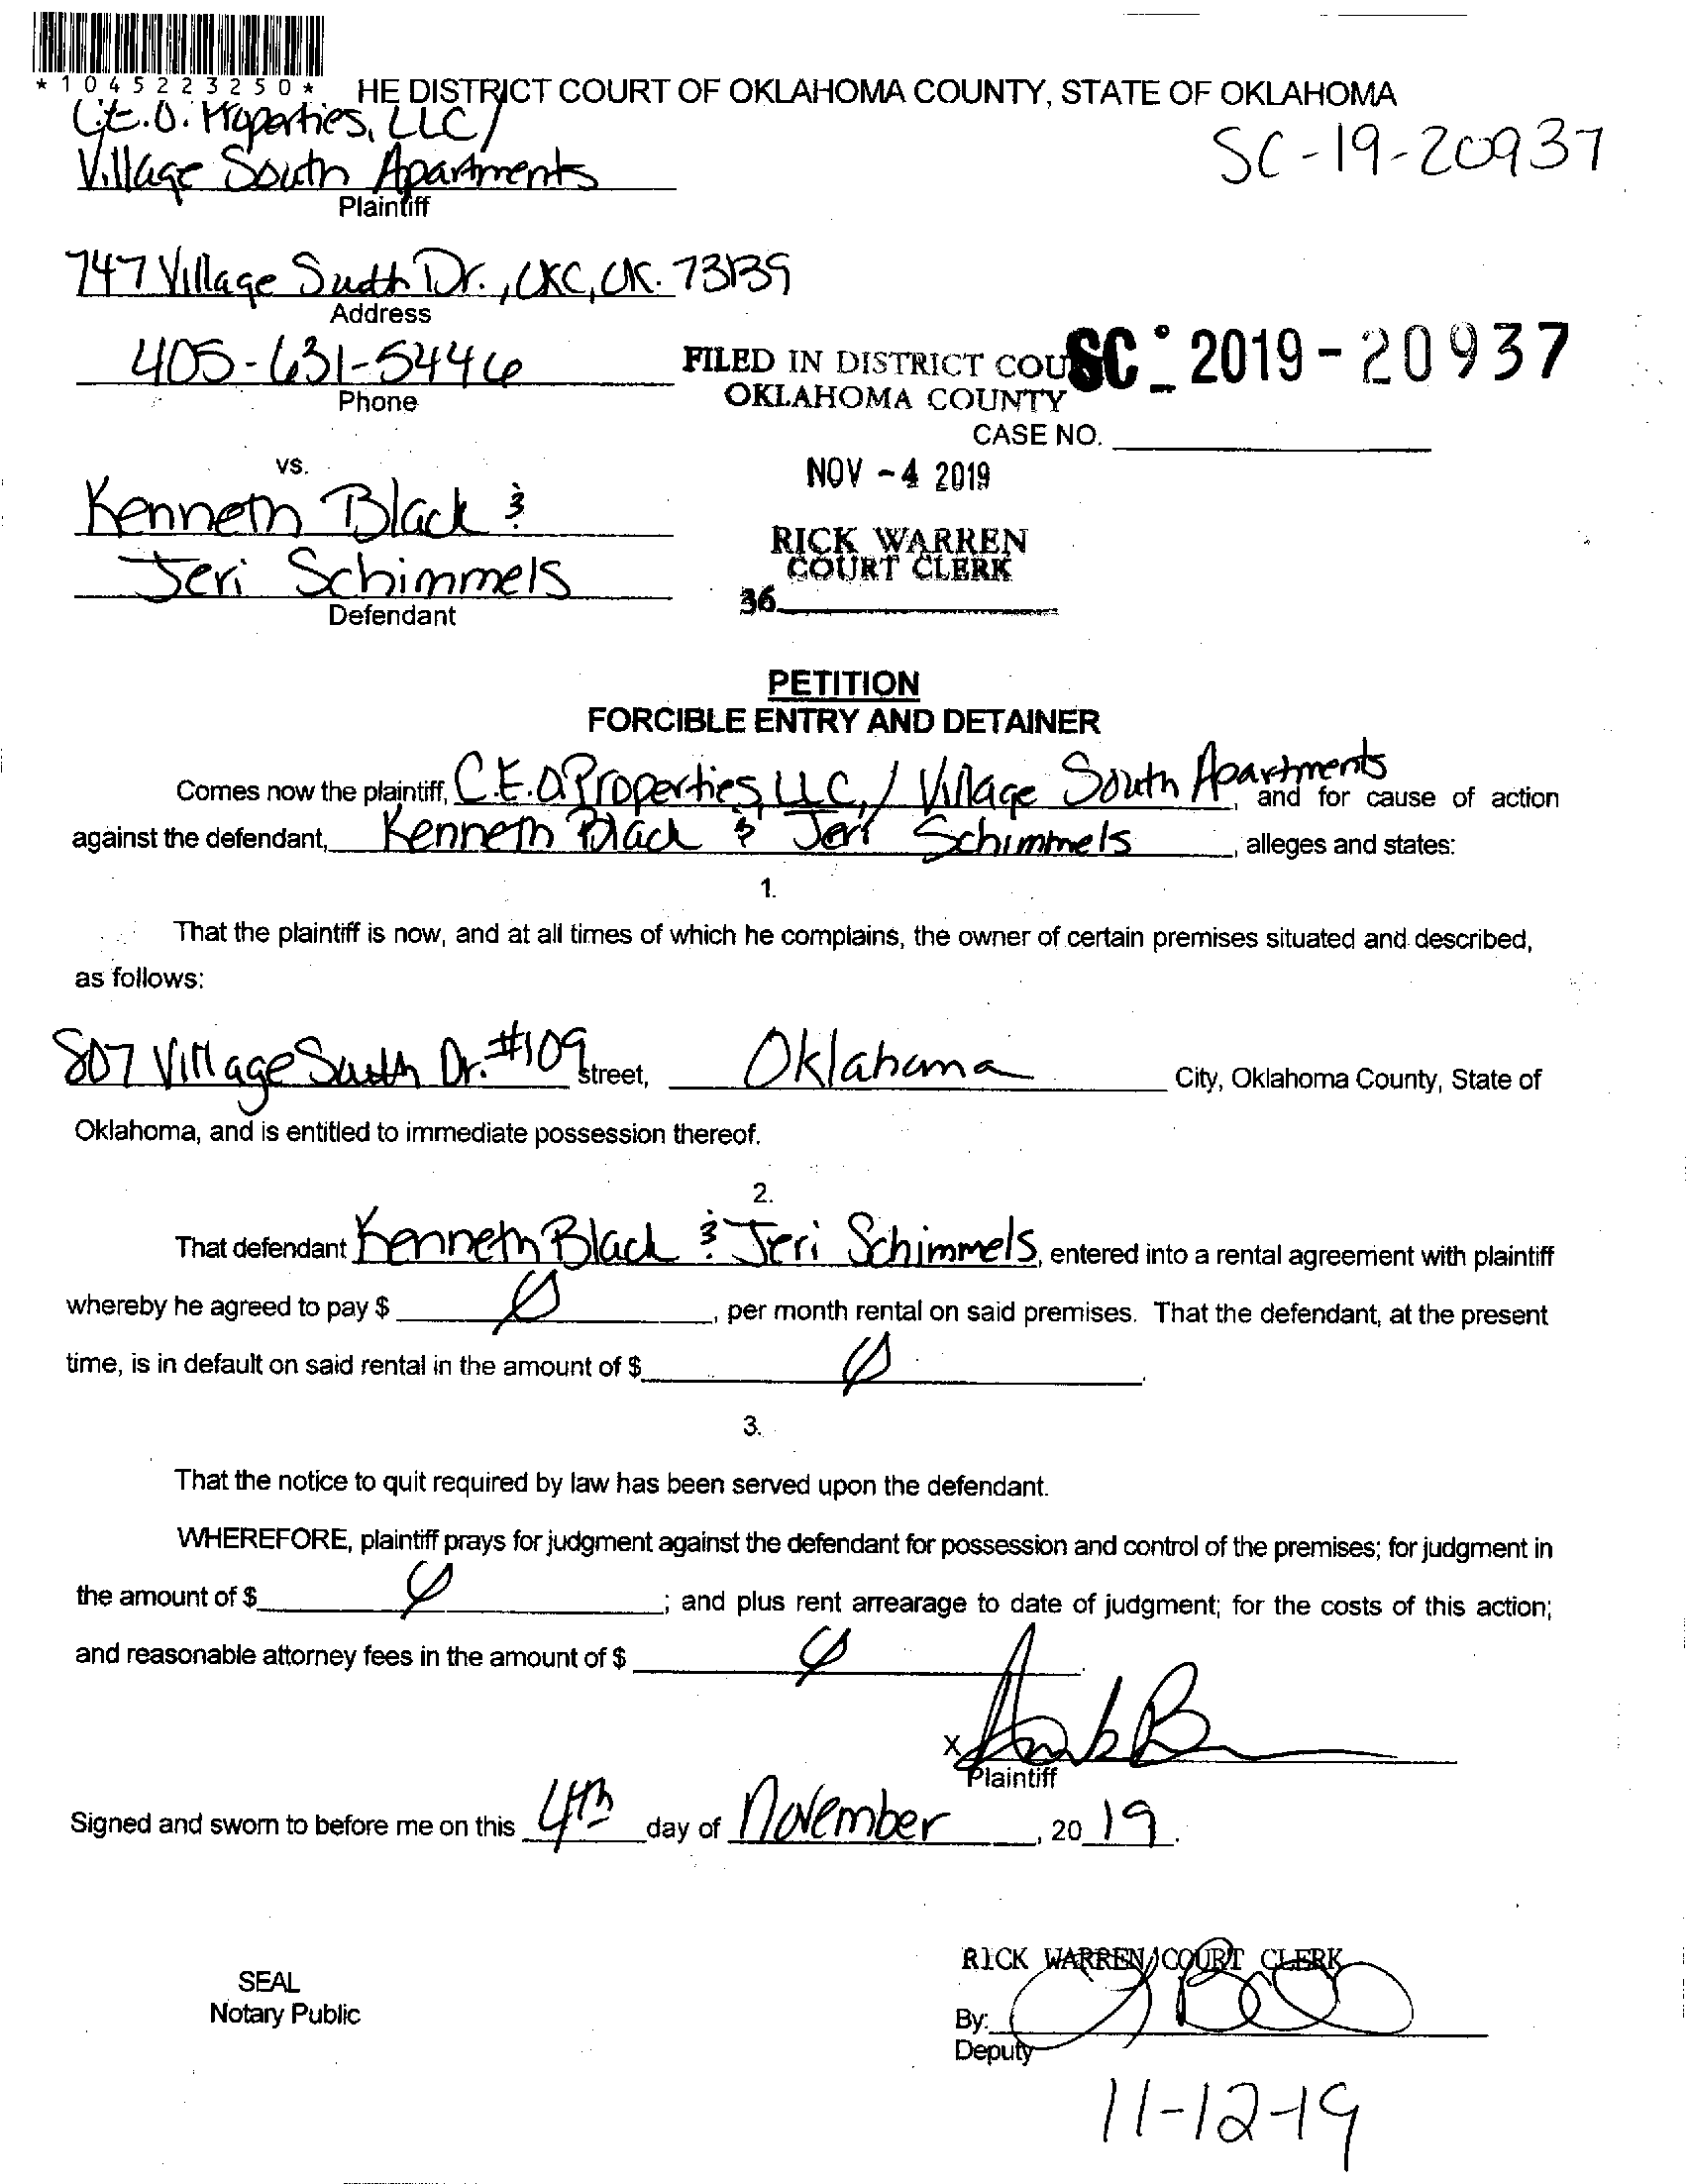 *1045223250*
HE DISTRICT COURT OF OKLAHOMA COUNTY, STATE OF OKLAHOMA
C.E.O. Properties, LLC /
SC-19-20937
Village South Apartments
Plaintiff
747 Village South Dr., OKC, OK. 73139
Address
405-631-5446
FILED IN DISTRICT COU SC - 2019 - 20937
Phone
OKLAHOMA COUNTY
CASE NO.
vs.
NOV - 4 2019
Kenneth Black &
RICK WARREN
COURT CLERK
Jeri Schimmels
36
Defendant
PETITION
FORCIBLE ENTRY AND DETAINER
Comes now the plaintiff, C.E.O Properties, LLC, / Village South Apartments, and for cause of action
against the defendant, Kenneth Black & Jeri Schimmels, alleges and states:
1.
That the plaintiff is now, and at all times of which he complains, the owner of certain premises situated and described,
as follows:
807 Village South Dr. #109 street, Oklahoma City, Oklahoma County, State of
Oklahoma, and is entitled to immediate possession thereof.
2.
That defendant Kenneth Black & Jeri Schimmels, entered into a rental agreement with plaintiff
whereby he agreed to pay $ Ø, per month rental on said premises. That the defendant, at the present
time, is in default on said rental in the amount of $ Ø.
3.
That the notice to quit required by law has been served upon the defendant.
WHEREFORE, plaintiff prays for judgment against the defendant for possession and control of the premises; for judgment in
the amount of $ Ø; and plus rent arrearage to date of judgment; for the costs of this action;
and reasonable attorney fees in the amount of $ Ø
X
Plaintiff
Signed and sworn to before me on this 4th day of November, 2019.
RICK WARREN, COURT CLERK
SEAL
Notary Public
By:
Deputy
11-12-19